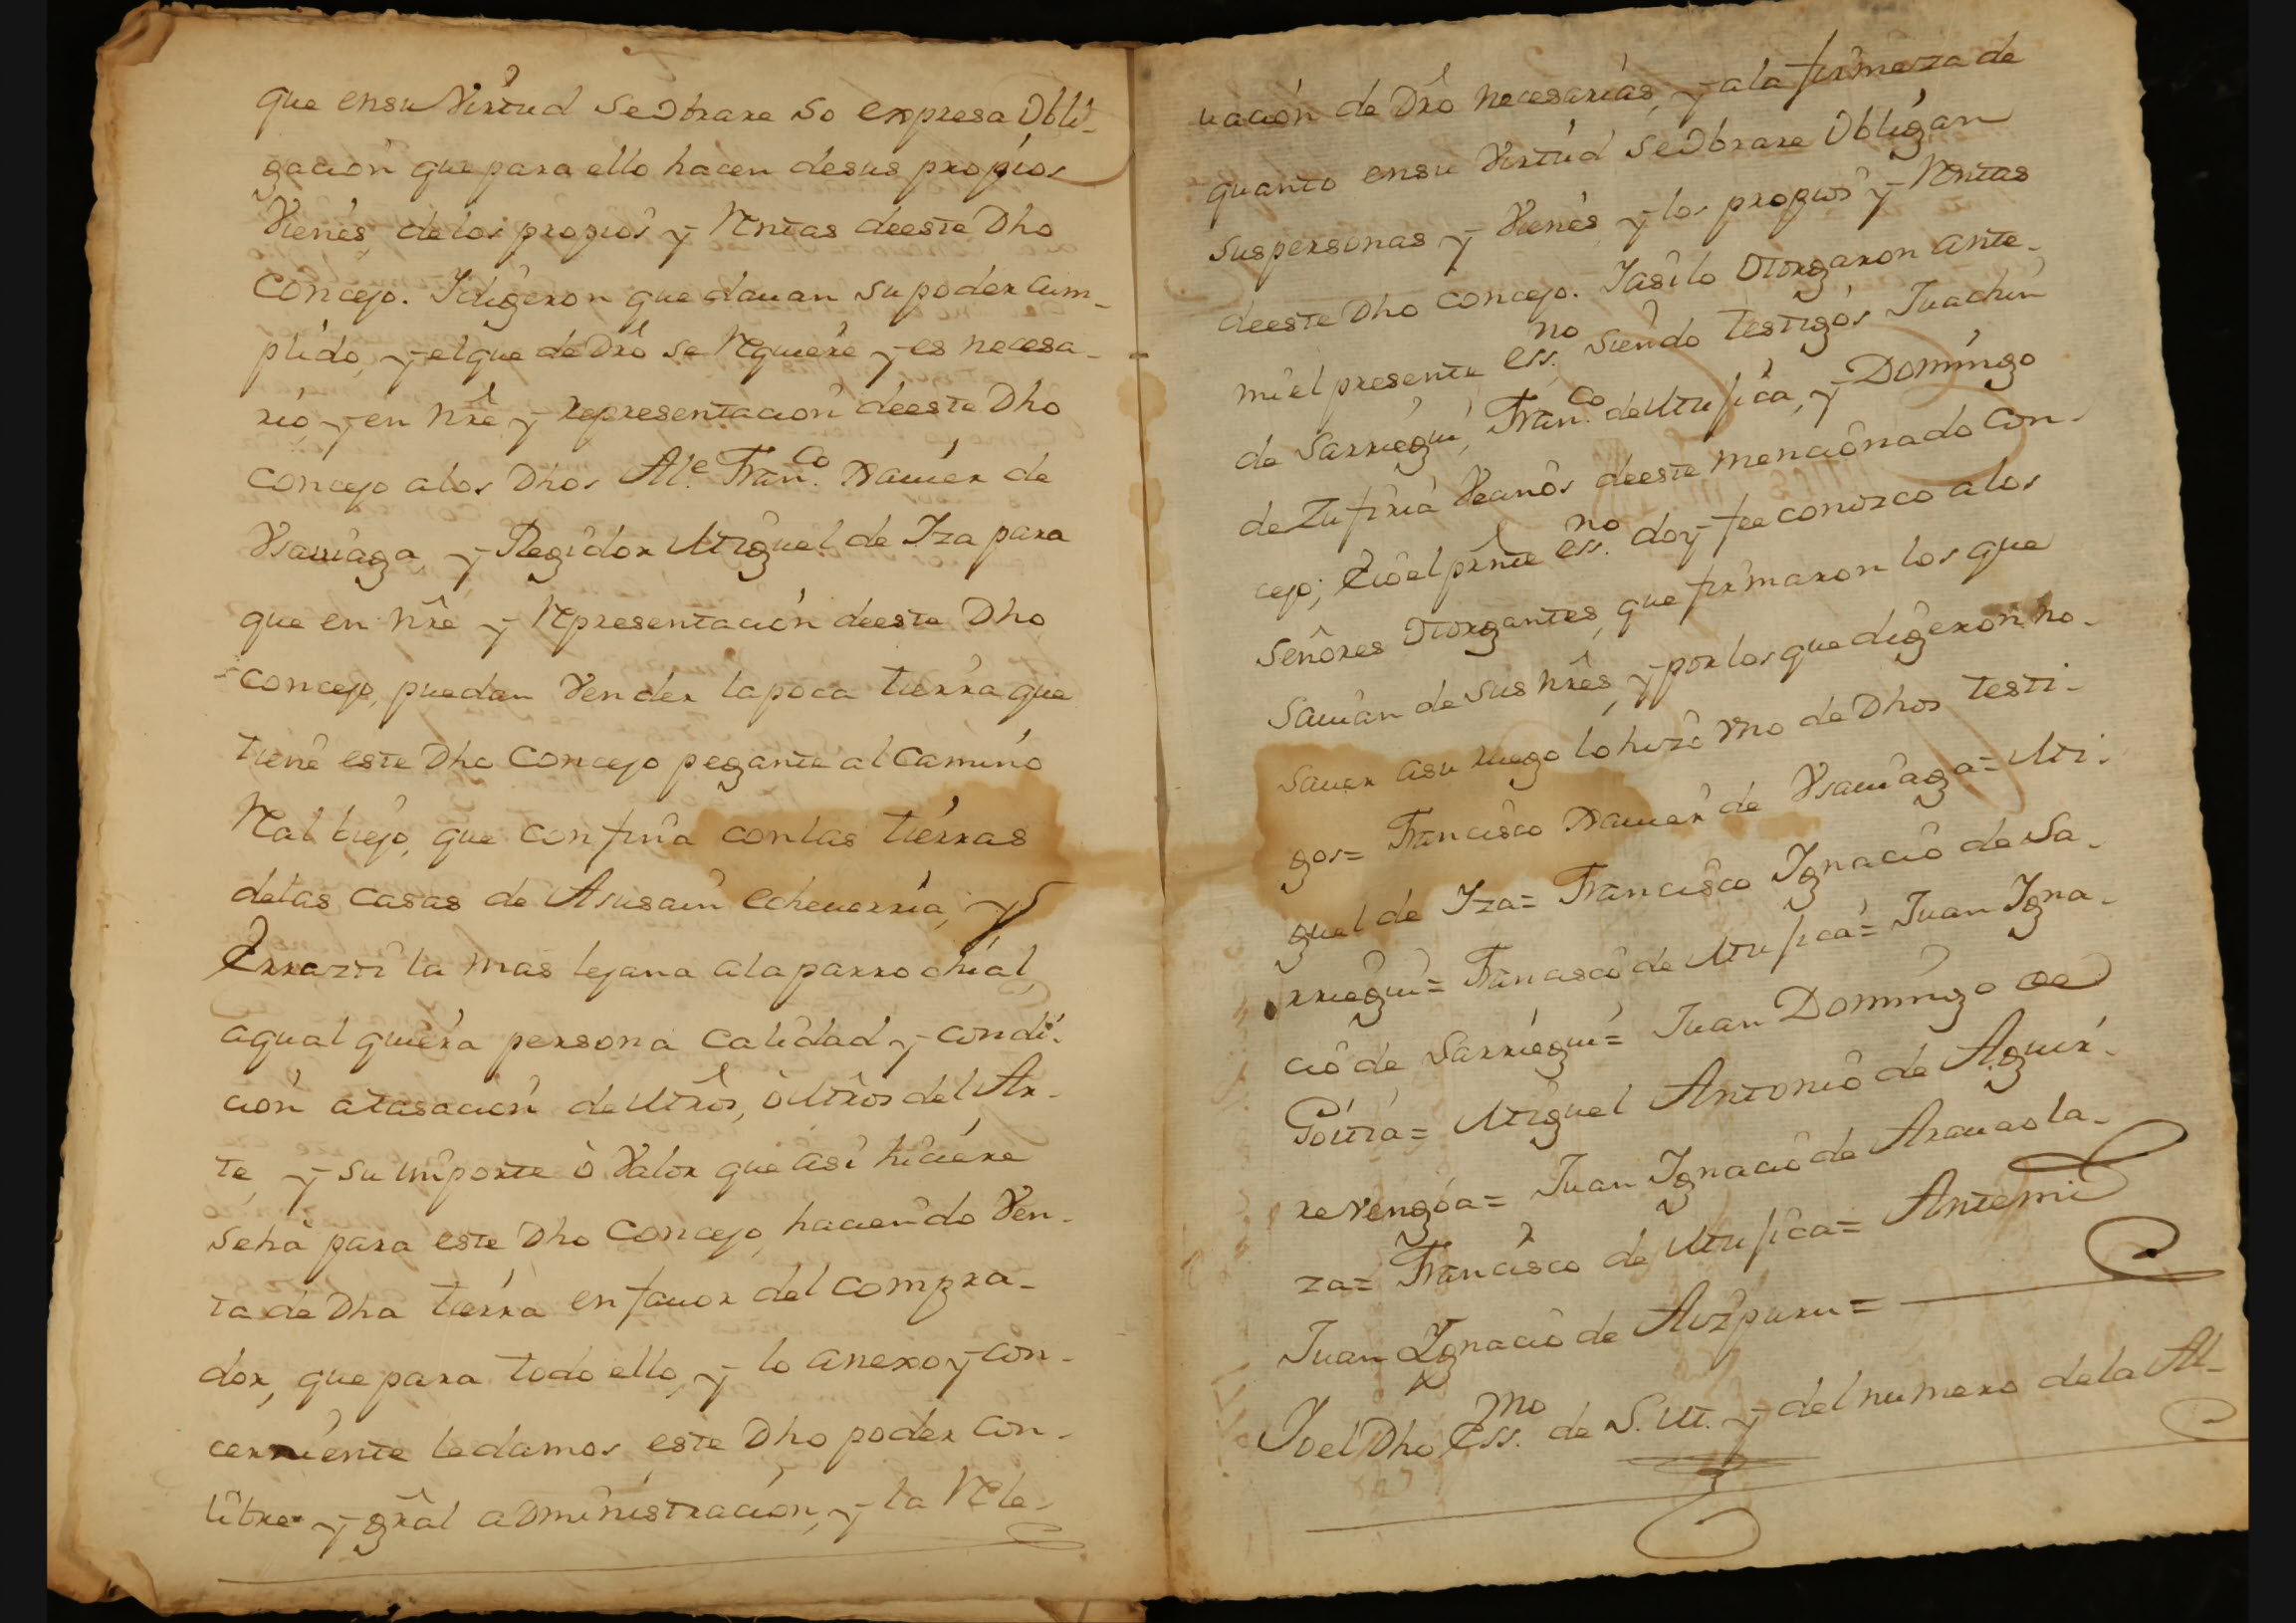 que ensu Virtud se Obrare so expresa Obli-
gacion que para ello hacen desus propios
Vienes, delos propios y Rentas deeste Dho
Concejo. Idigeron que dauan su poder Cum-
plido, y elque de Dro se Requiere y es necesa-
rio, y en nre y representacion deeste Dho
Concejo alos Dhos Ale. Franco. Xauier de
Vsauiaga, y Regidor Miguel de Iza para
que en nre y Representacion deeste Dho
Concejo, puedan Vender lapoca tierra que
tiene este Dho Concejo pegante al Camino
Real biejo, que Confina conlas tierras
delas Casas de Asusain echeuerria, y
Errazti la mas lejana ala parrochial,
aqual quiera persona Calidad y condi-
cion atasacion de Mros, ò Mros del Ar-
te, y su importe ò Valor que asi hiciere
Seha para este Dho Concejo, haciendo Ven-
ta de Dha tierra en fauor del Compra-
dor, que para todo ello, y lo anexo y con-
cerniente ledamos este Dho poder con
libre y gral administracion, y la Rele-
uacion de Dro necesarias, y ala firmeza de
quanto ensu Virtud se Obrare Obligan
suspersonas y Vienes, y los propios y Rentas
deeste Dho Concejo. Iasilo Otorgaron ante
miel presente essno. siendo testigos Juachin
de Sarriegui, Franco. de Mufica, y Domingo
de Zufiria Vecinos deeste mencionado Con-
cejo; Eio el prnte essno. doy fee conozco alos
Señores Otorgantes, que firmaron los que
Sauian de sus nres, y por los que digeron no
Sauer asu ruego lo hizo Vno de Dhos testi-
gos= Francisco Xauier de Vsauiaga= Mi-
guel de Iza= Francisco Ignacio de Sa-
rriegui= Francisco de Mufica= Juan Igna-
cio de Sarriegui= Juan Domingo de
Goitia= Miguel Antonio de Aguir-
re vengoa= Juan Ignacio de Araunola-
za= Francisco de Mufica= Antemi
Juan Ignacio de Aizpuru=
Io el Dho Essno. de S. M. y del numero dela Al-